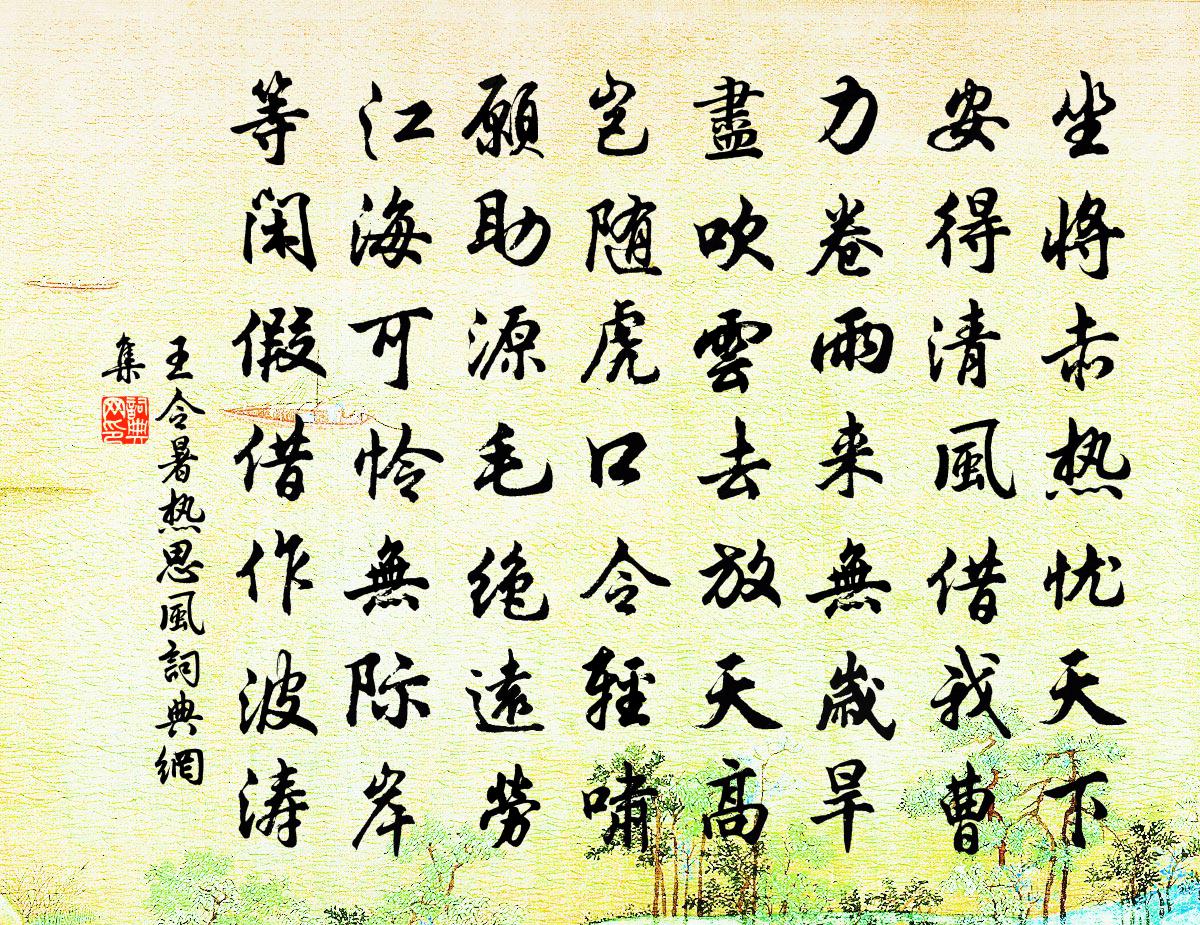 坐将赤热忧天下
安得清風借我曹
力卷雨来無歲旱
盡吹雲去放天高
岂随虎口令輕嘯
願助源毛绝遠勞
江海可怜無际岸
等闲假借作波涛
王令暑热思風詞典網
集
詞典
网印